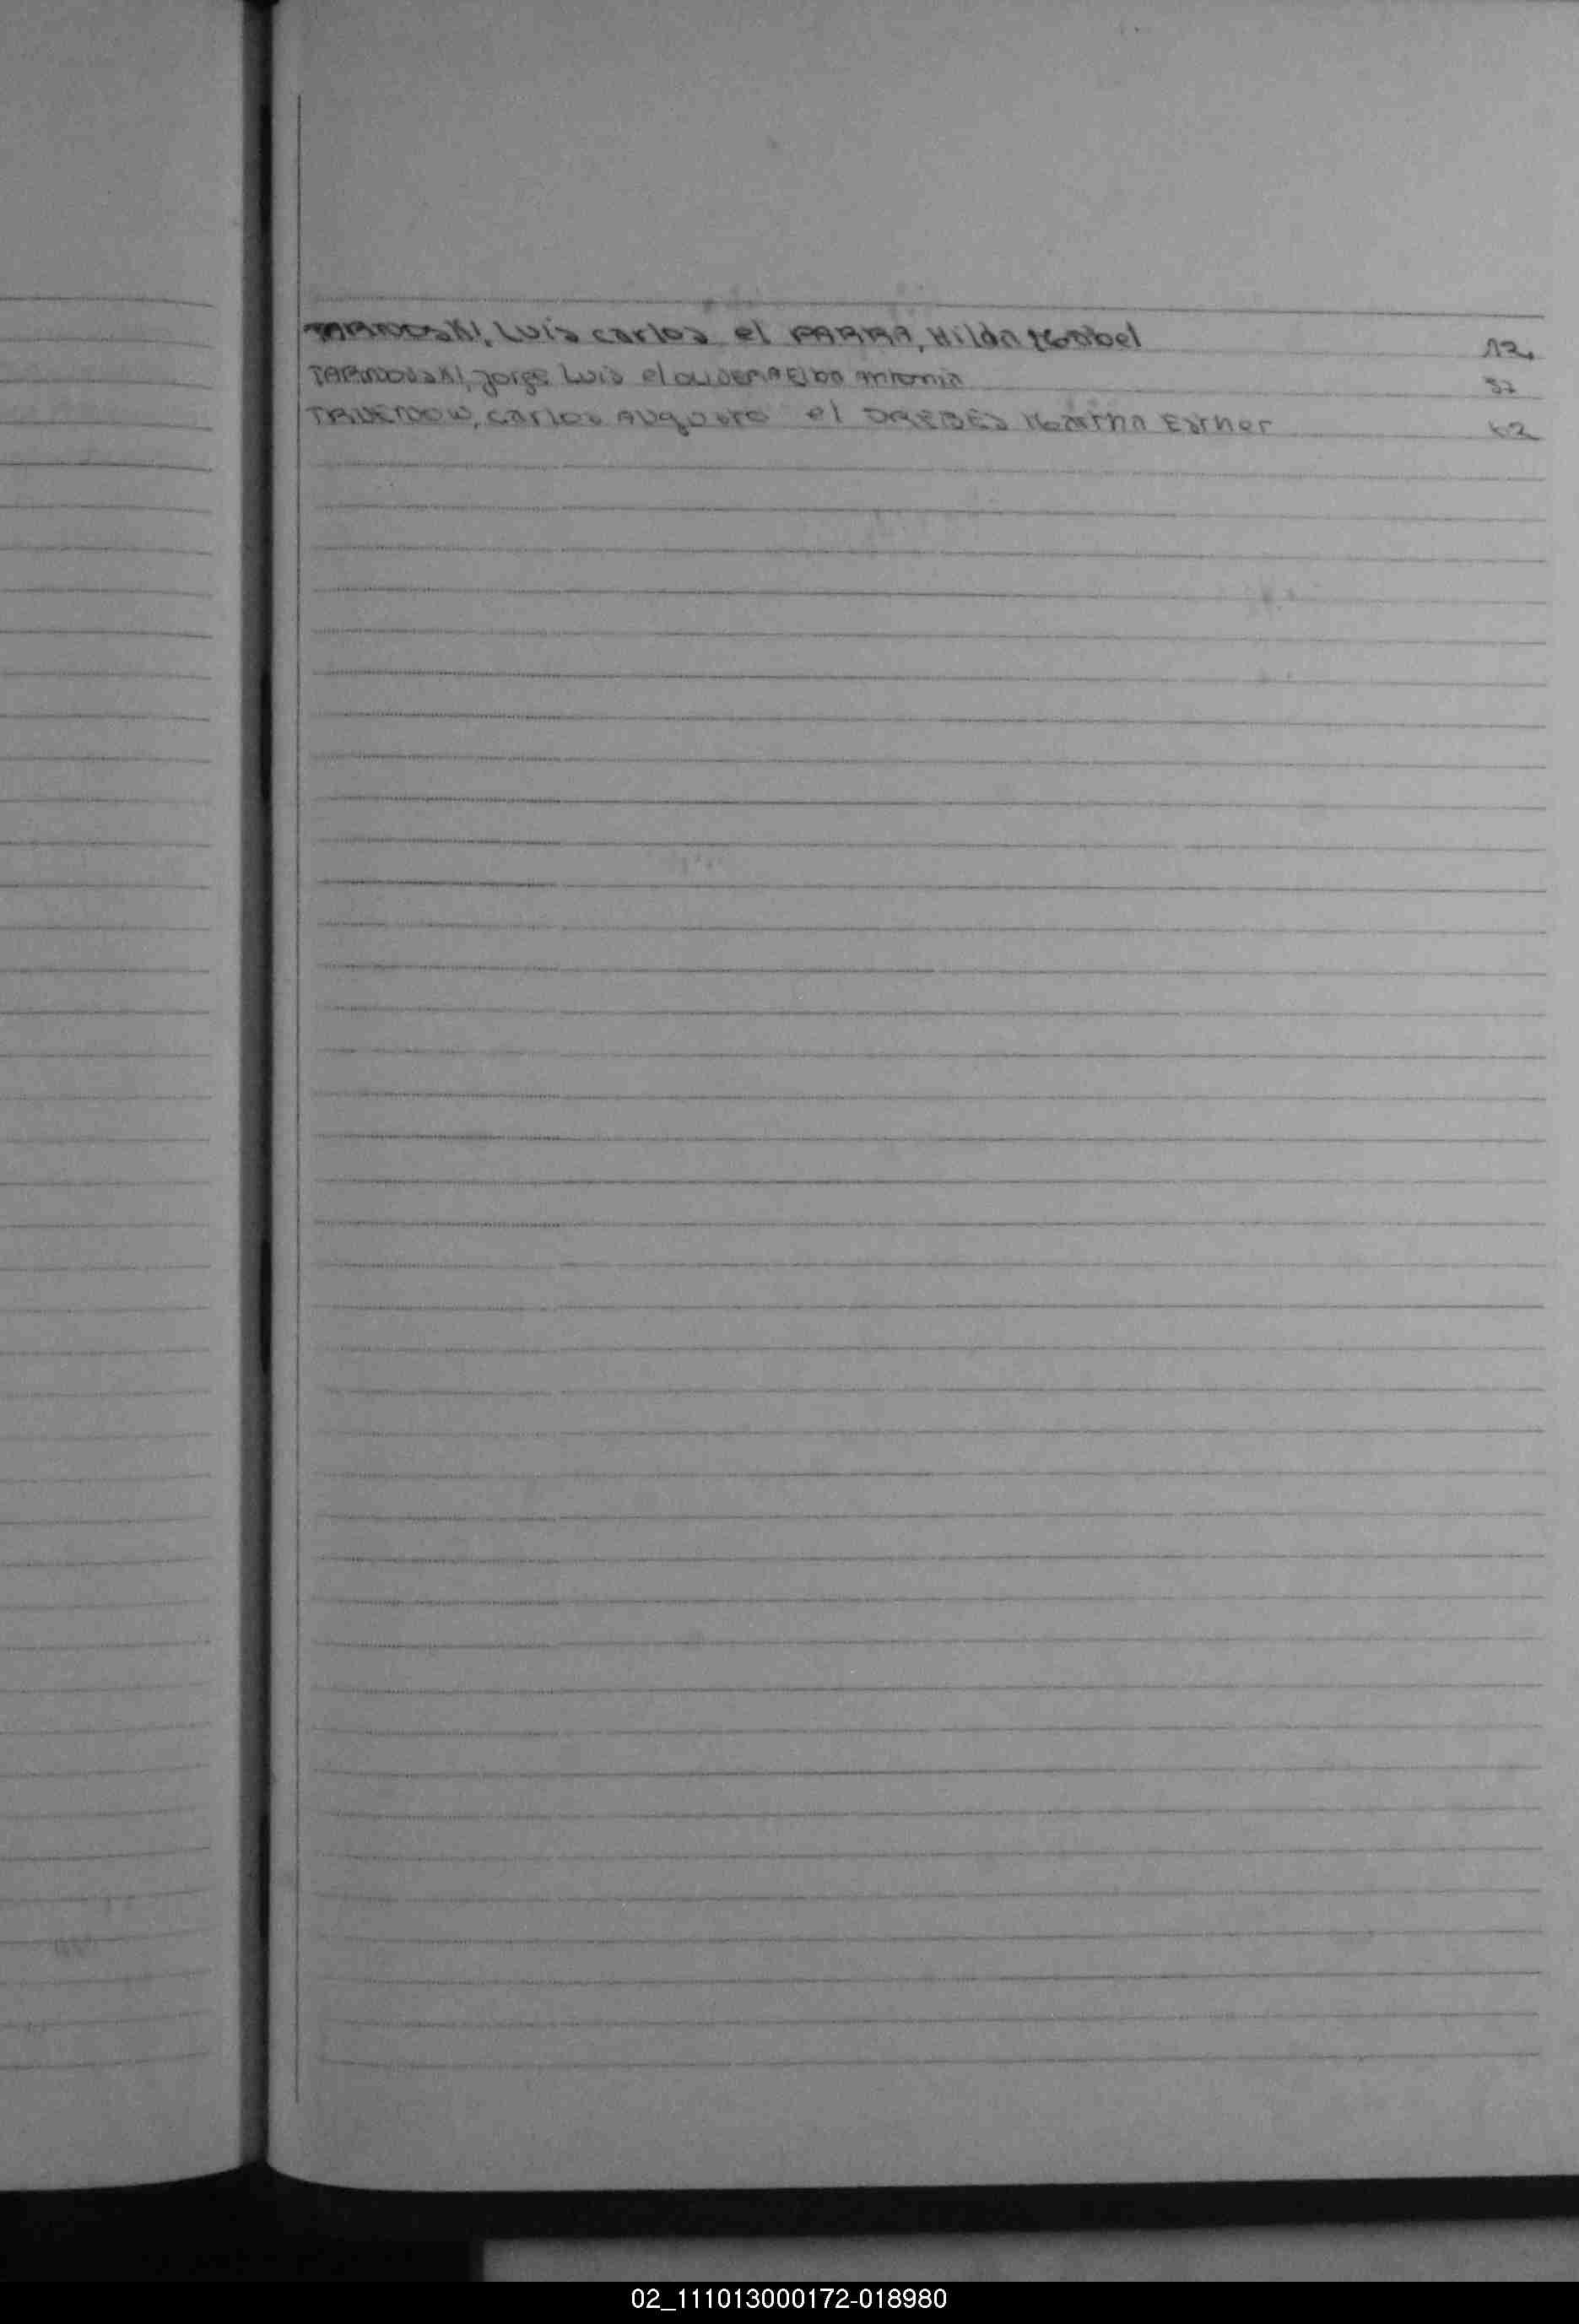 TARNOSKI, Luis carlos el PARRA, Hilda Isabel 12
TARNOVSKI, Jorge Luis el Antonia 32
TRUENDOW, Carlos Augusto el DREBES Martha Esther 62
02_111013000172-018980